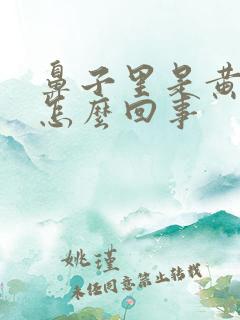 鼻子里呆黄
怎麽回事
姚瑾
未经同意禁止转载